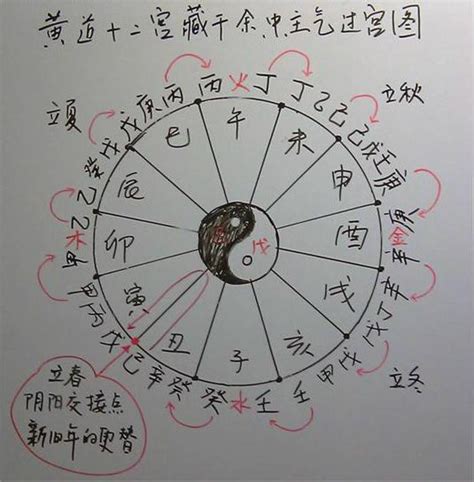 黄道十二宫藏干余中主气过宫图
丙 火 丁
戊 庚 丙
丁 乙 己
立夏
立秋
癸 戊
己 戊 壬 庚
乙 乙
木
金
甲
辛
甲 丙 戊
辛 丁 戊
己 辛 癸
癸 水 壬
壬 甲 戊
立冬
巳 午 未
辰 申
卯 酉
寅 戌
丑 子 亥
戊
立春
阴阳交接点
新旧年的更替